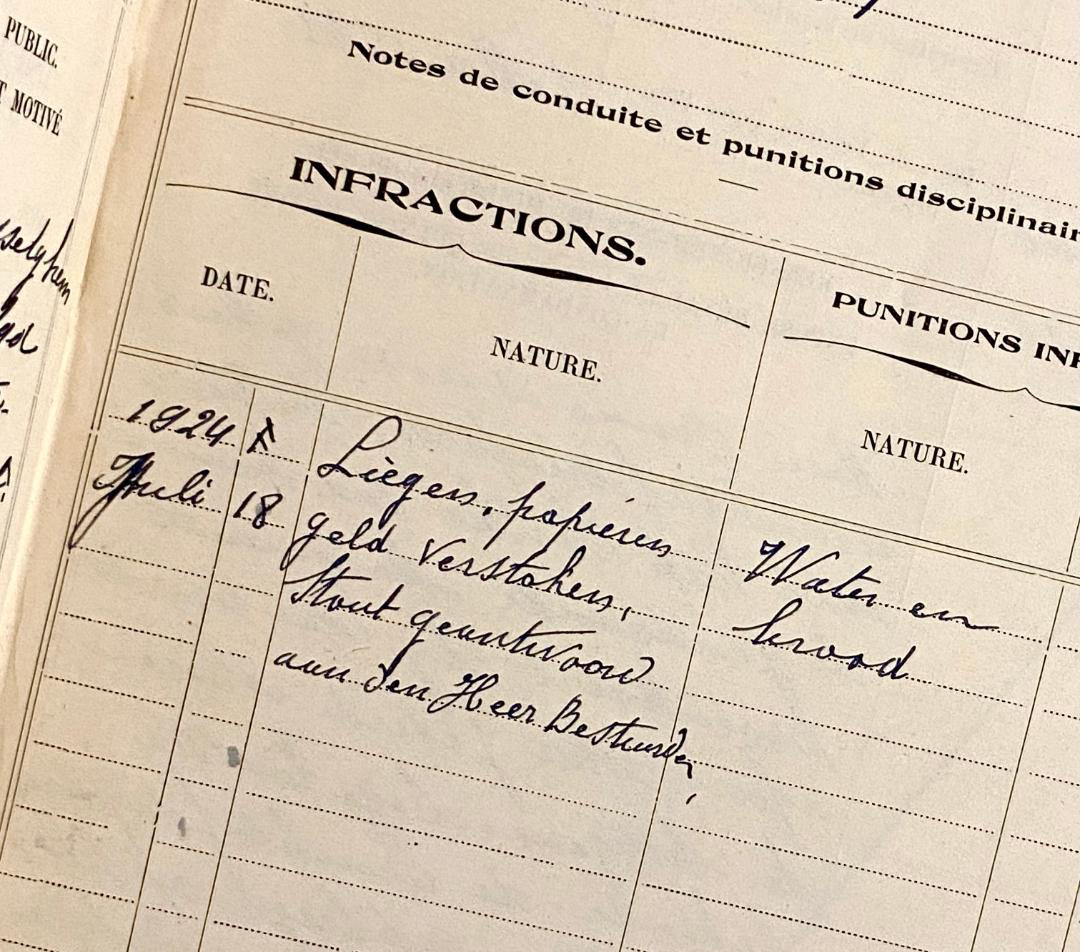 PUBLIC.
MOTIVÉ
Notes de conduite et punitions disciplinair
INFRACTIONS.
PUNITIONS INF
DATE.
NATURE.
NATURE.
1924
Juli 18
Liegen, papieren
geld verstoken,
Stout geantwoord
aan den Heer Bestuurder,
Water en
brood